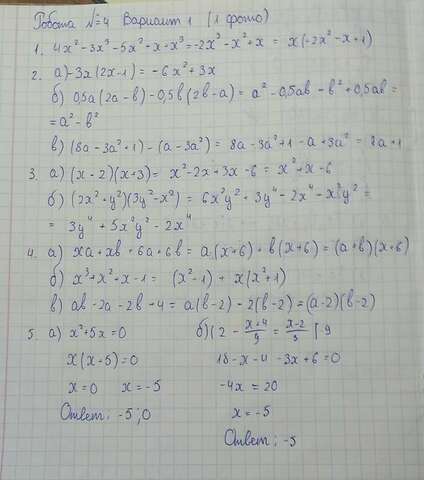 Работа №4 Вариант 1 (1 фото)
1. 4x² - 3x³ - 5x² + x + x³ = -2x³ - x² + x = x(-2x² - x + 1)
2. а) -3x(2x-1) = -6x² + 3x
б) 0,5a(2a-b) - 0,5b(2b-a) = a² - 0,5ab - b² + 0,5ab =
= a² - b²
в) (8a - 3a² + 1) - (a - 3a²) = 8a - 3a² + 1 - a + 3a² = 7a + 1
3. а) (x - 2)(x + 3) = x² - 2x + 3x - 6 = x² + x - 6
б) (2x² + y²)(3y² - x²) = 6x²y² + 3y⁴ - 2x⁴ - x²y² =
= 3y⁴ + 5x²y² - 2x⁴
4. а) xa + xb + 6a + 6b = a(x+6) + b(x+6) = (a+b)(x+6)
б) x³ + x² + x - 1 = (x² - 1) + x(x² + 1)
в) ab - 2a - 2b + 4 = a(b-2) - 2(b-2) = (a-2)(b-2)
5. а) x² + 5x = 0
x(x+5) = 0
x = 0 x = -5
Ответ: -5; 0
б) (2 - x+4/9 = x-2/3 | 9
18 - x - 4 - 3x + 6 = 0
-4x = 20
x = -5
Ответ: -5